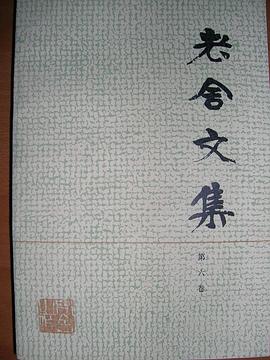 老舍文集
第六卷